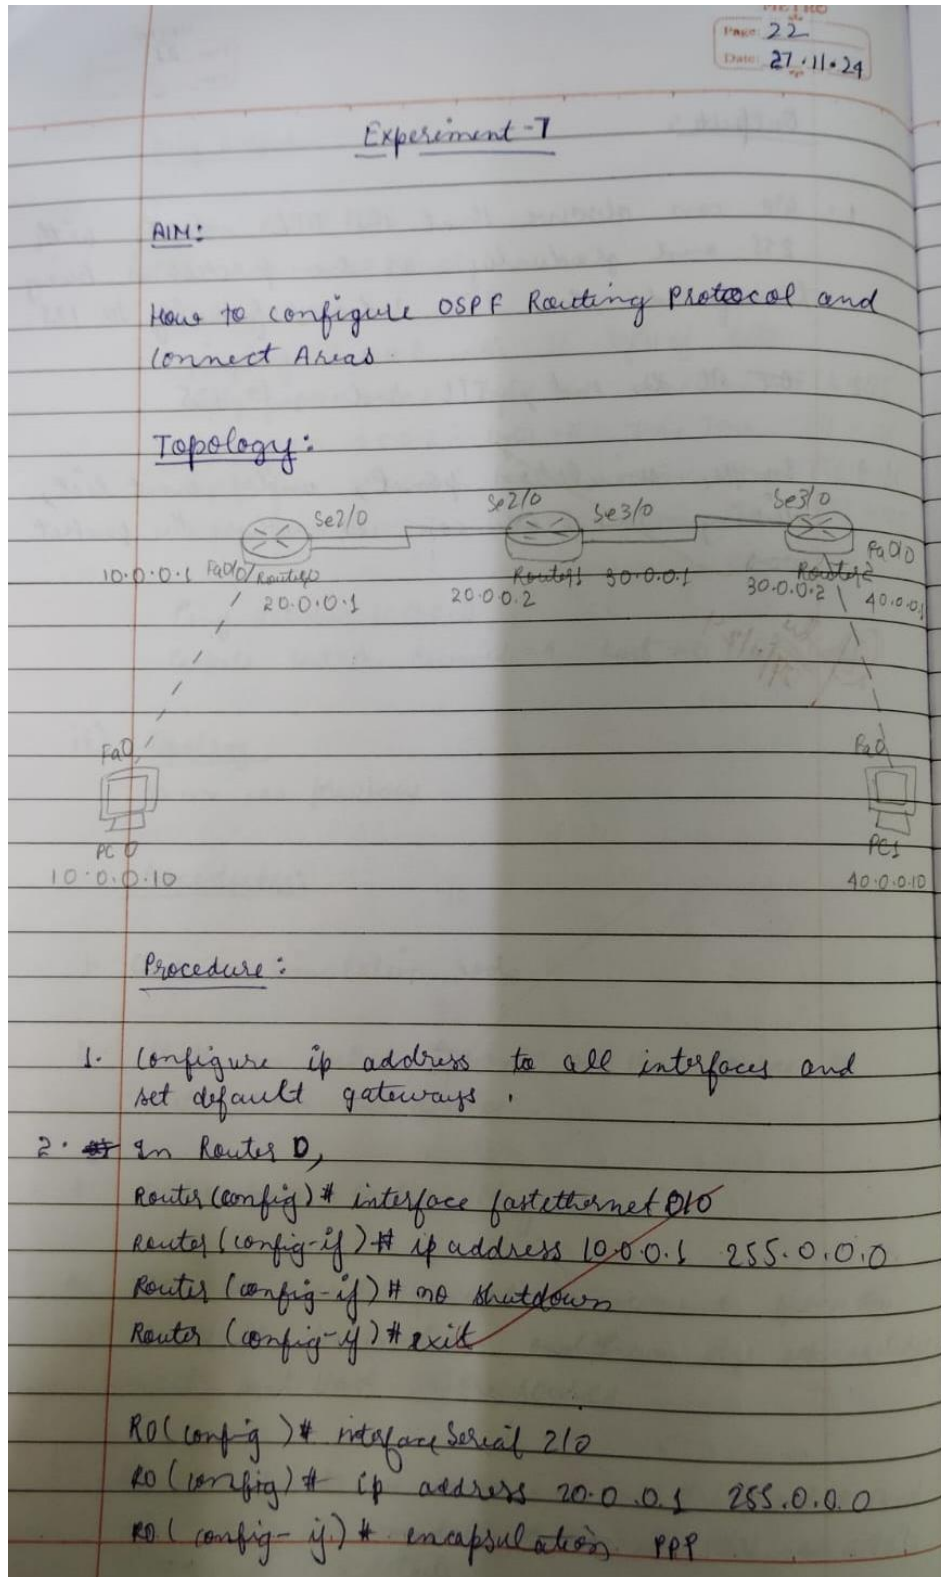 METRO
Page: 22
Date: 27.11.24
Experiment-7
AIM:
How to configure OSPF Routing Protocol and
Connect Areas.
Topology:
Se2/0 Se2/0 Se3/0 Se3/0
10.0.0.1 Fa0/0 Router0 Router1 30.0.0.1 Router2 Fa0/0
20.0.0.1 20.0.0.2 30.0.0.2 40.0.0.1
Fa0 Fa0
PC 0 PC1
10.0.0.10 40.0.0.10
Procedure:
1. Configure ip address to all interfaces and
set default gateways.
2. In Router 0,
Router(config)# interface fastethernet 0/0
Router(config-if)# ip address 10.0.0.1 255.0.0.0
Router (config-if)# no shutdown
Router (config-if)# exit
R0(config)# interface Serial 2/0
R0(config)# ip address 20.0.0.1 255.0.0.0
R0(config-if)# encapsulation PPP